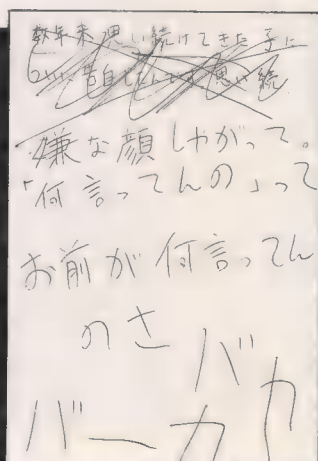 数年来思い続けてきた子に
つい告白したんだ 思い続
嫌な顔しやがって。
「何言ってんの」って
お前が何言ってん
のさ バカ
バーカ